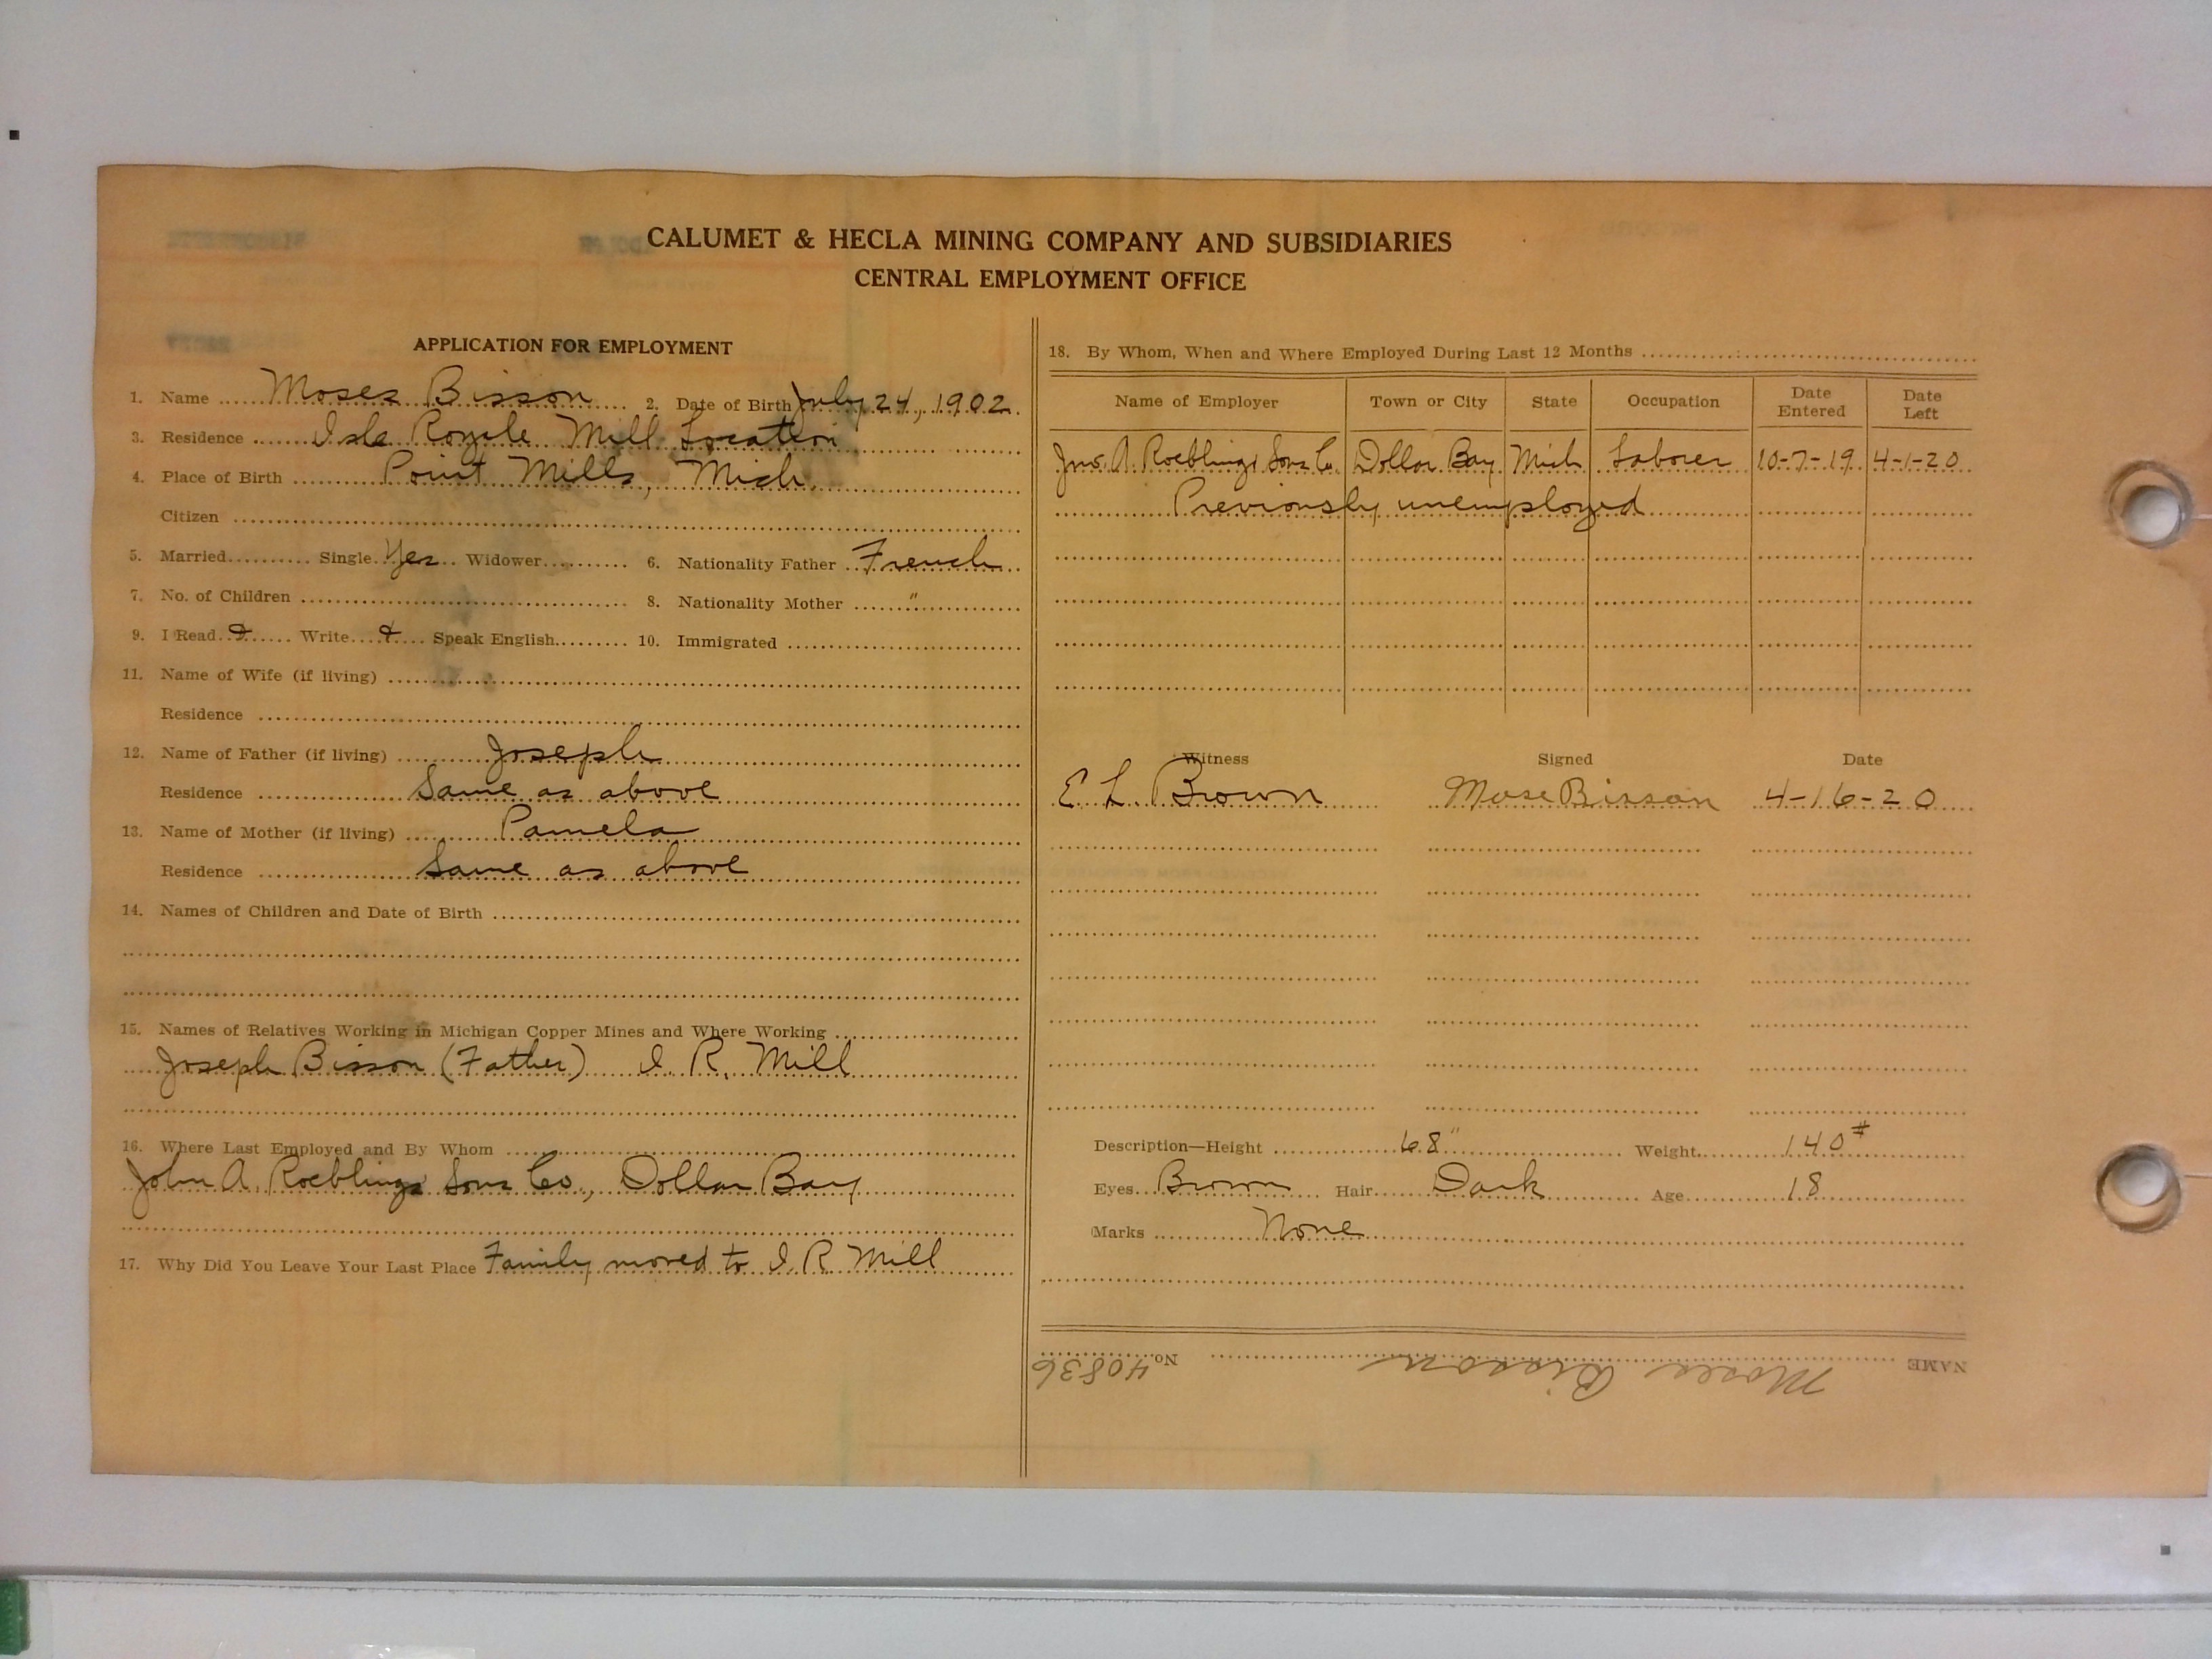 CALUMET & HECLA MINING COMPANY AND SUBSIDIARIES
CENTRAL EMPLOYMENT OFFICE
APPLICATION FOR EMPLOYMENT
1. Name Moses Bisson 2. Date of Birth July 24, 1902
3. Residence Isle Royale Mill Location
4. Place of Birth Point Mills, Mich.
Citizen
5. Married Single Yes Widower 6. Nationality Father French
7. No. of Children 8. Nationality Mother "
9. I Read & Write & Speak English 10. Immigrated
11. Name of Wife (if living)
Residence
12. Name of Father (if living) Joseph
Residence Same as above
13. Name of Mother (if living) Pamela
Residence Same as above
14. Names of Children and Date of Birth
15. Names of Relatives Working in Michigan Copper Mines and Where Working
Joseph Bisson (Father) I. R. Mill
16. Where Last Employed and By Whom
John A. Roeblings Sons Co., Dollar Bay
17. Why Did You Leave Your Last Place Family moved to I. R. Mill
18. By Whom, When and Where Employed During Last 12 Months
Name of Employer Town or City State Occupation Date Entered Date Left
Jno. A. Roeblings Sons Co. Dollar Bay Mich Laborer 10-7-19 4-1-20
Previously unemployed
Witness Signed Date
E L Brown Mose Bisson 4-16-20
Description—Height 68" Weight 140#
Eyes Brown Hair Dark Age 18
Marks None
NAME Moses Bisson No. 40836